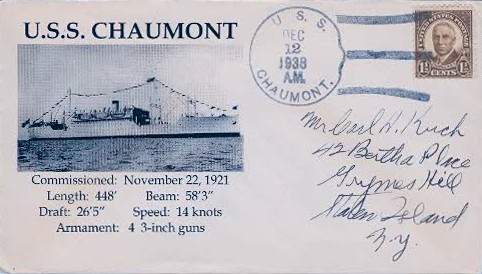 U.S.S. CHAUMONT
Commissioned: November 22, 1921
Length: 448' Beam: 58'3"
Draft: 26'5" Speed: 14 knots
Armament: 4 3-inch guns
U. S. S.
DEC
12
1938
A.M.
CHAUMONT.
UNITED STATES POSTAGE
1½ CENTS 1½
Mr Carl H. Kuch
42 Bertha Place
Grymes Hill
Staten Island
N.Y.